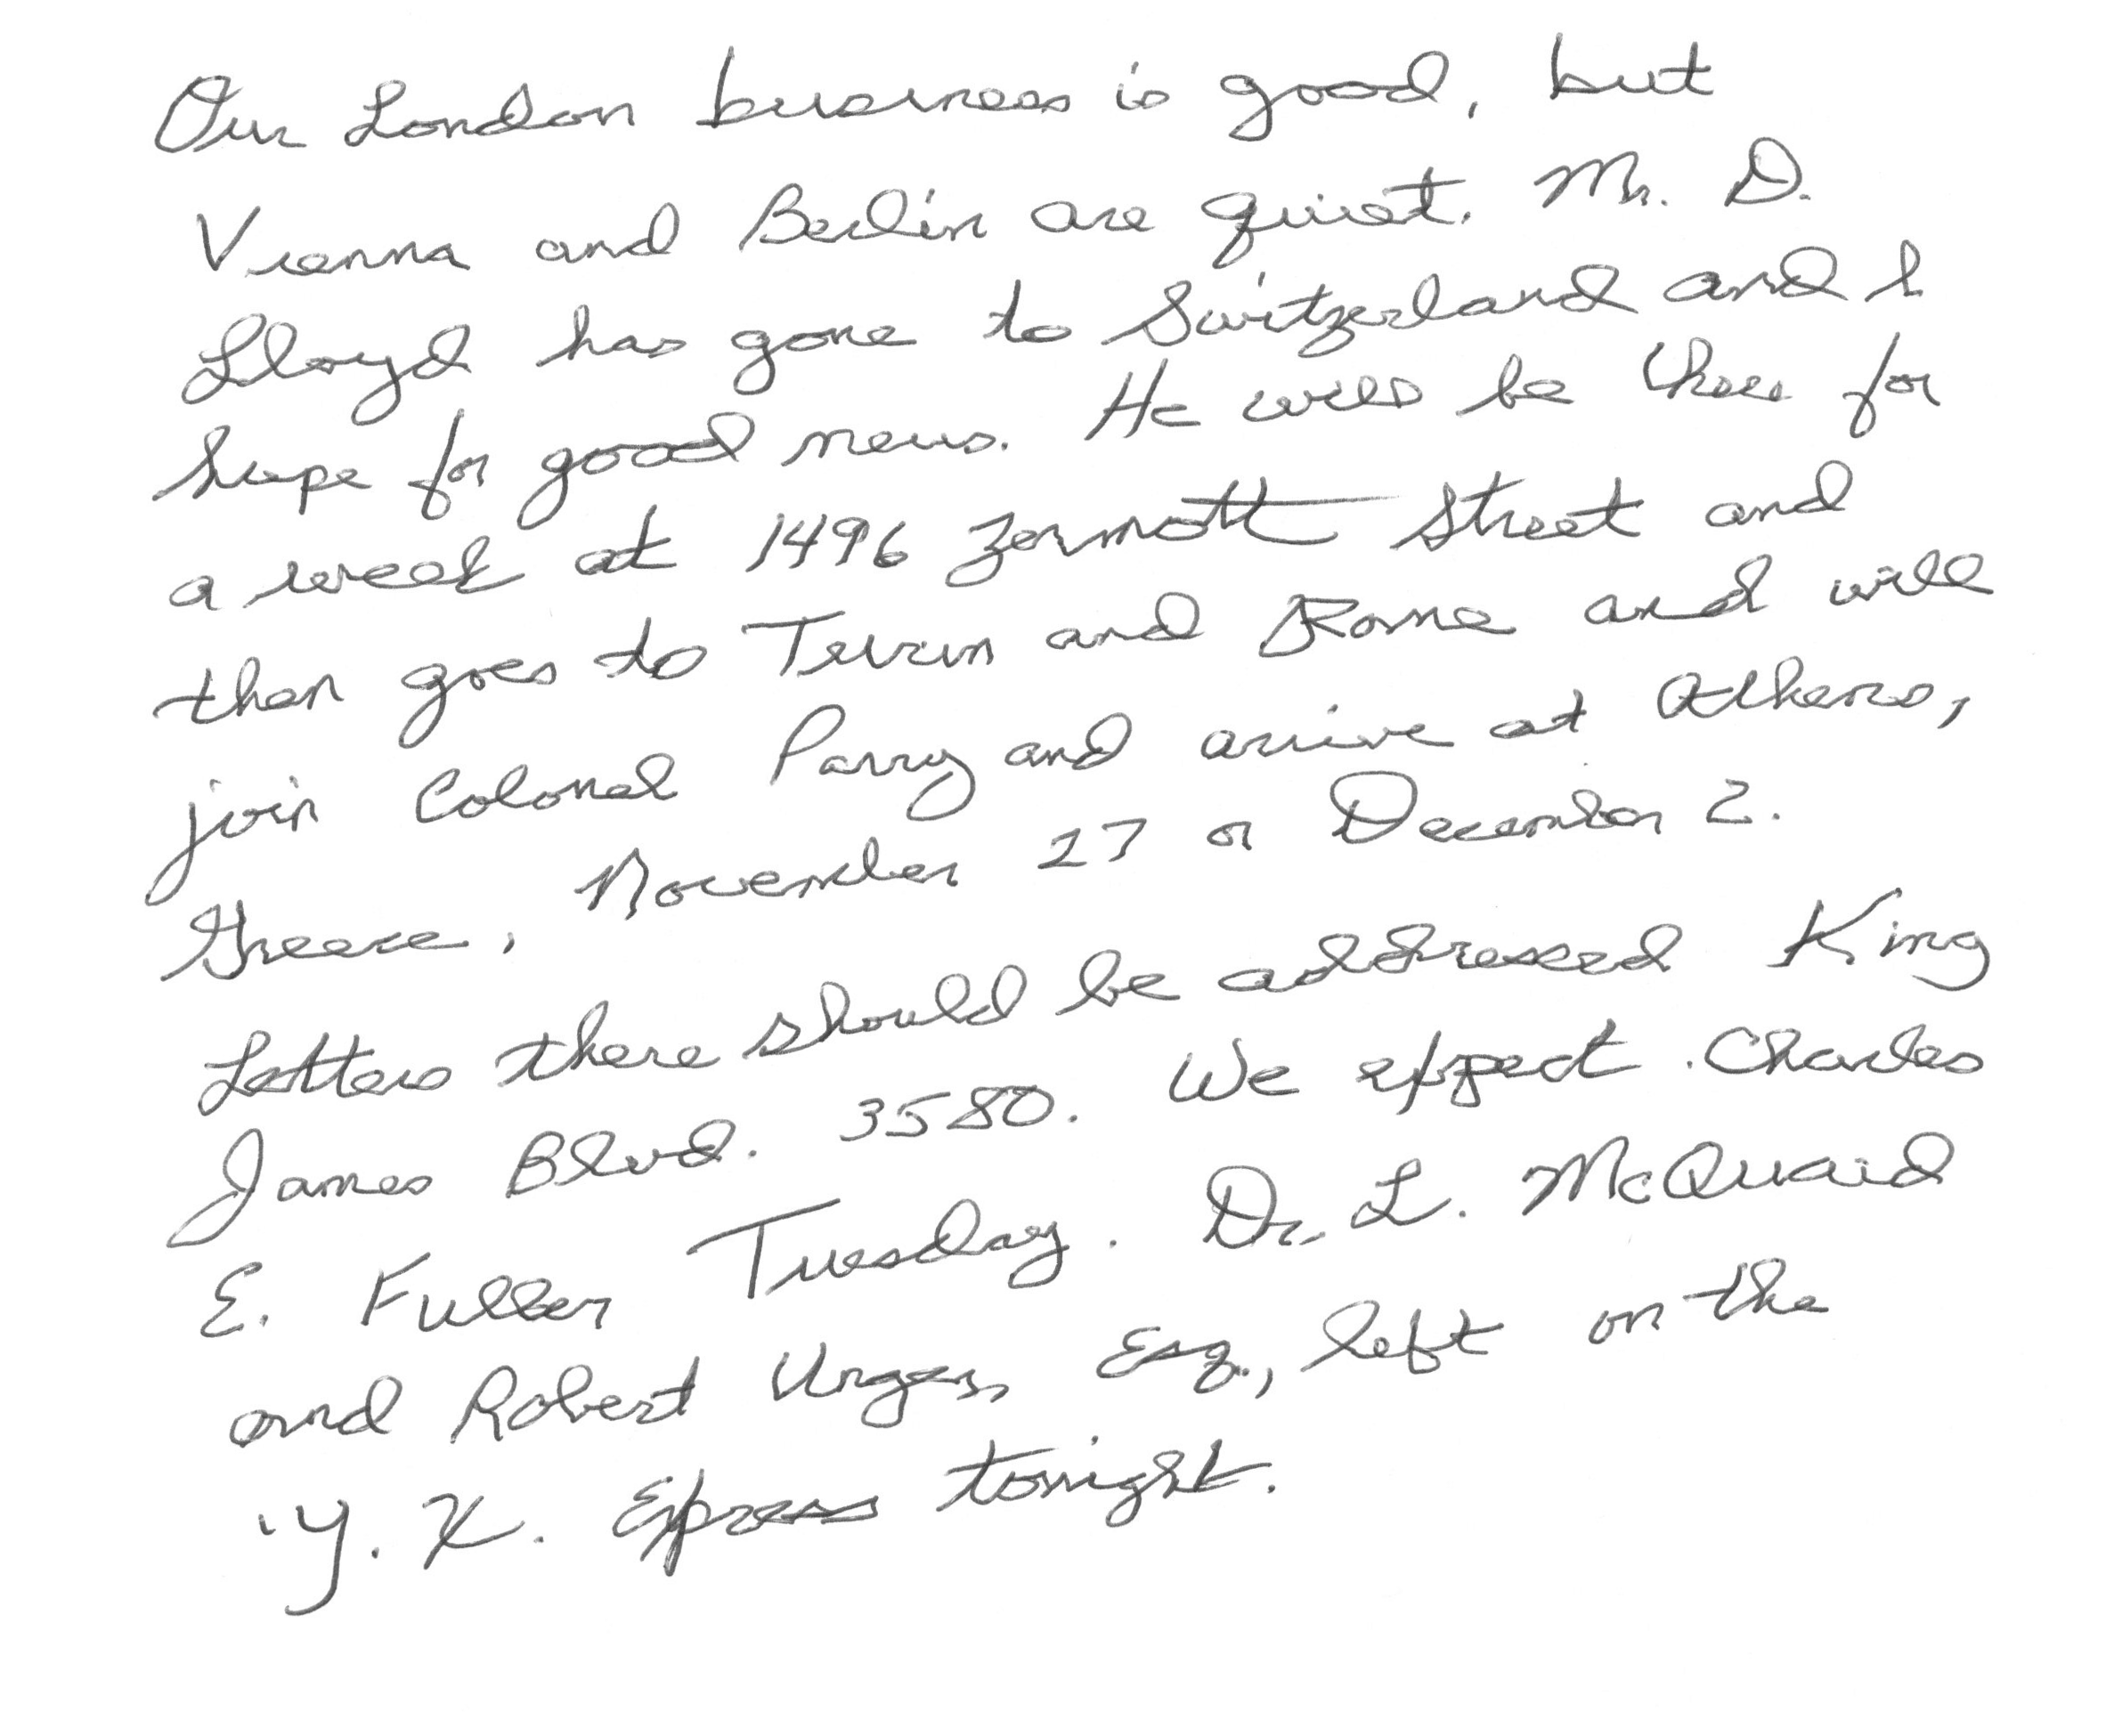 Our London business is good, but
Vienna and Berlin are quiet. Mr. D.
Lloyd has gone to Switzerland and I
hope for good news. He will be there for
a week at 1496 Zermott Street and
then goes to Turin and Rome and will
join Colonel Parry and arrive at Athens,
Greece, November 27 or December 2.
Letters there should be addressed King
James Blvd. 3580. We expect Charles
E. Fuller Tuesday. Dr. L. McQuaid
and Robert Unger, Esq., left on the
Y. X. Express tonight.